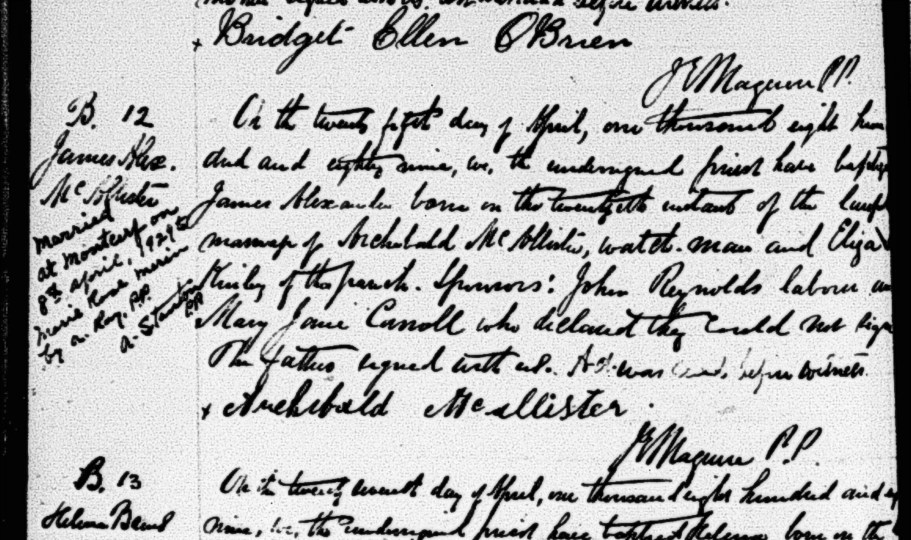 Bridget Ellen O'Brien
JEMaguire P.P.
B. 12
James Alex.
McAllister
married
at Montcerf on
8th april, 1929
marie Rose
by a. Roy. P.P.
P.P.
On the twenty fifth day of April, one thousand eight hun
dred and eighty nine, we, the undersigned priest have baptiz
James Alexander born on the twentieth instant of the lawful
marriage of Archibald McAllister, watch-man and Eliza
of this parish. Sponsors: John Reynolds labourer
Mary Jane Carroll who declared they could not sign
The father signed with us. Act was before witness
x Archibald McAllister.
JEMaguire P.P.
B. 13
On the twenty seventh day of April, one thousand eight hundred and
nine, we, the undersigned priest have baptized born on the